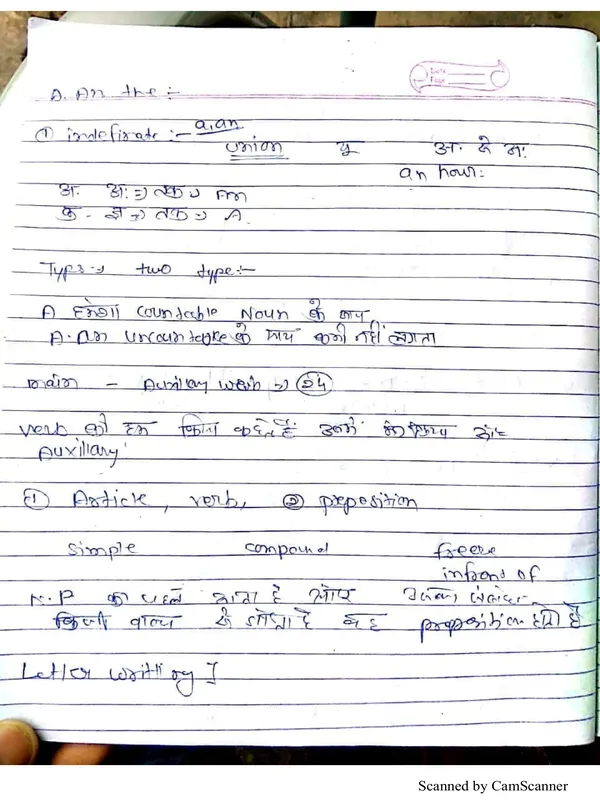 Date
Page
A. An the :-
① indefinate :- a, an
union यू अ. से अः
an hour:
अ. अः => तक => An
क - ज्ञ => तक => A.
Types => two type :-
A हमेशा countable Noun के साथ
A. An uncountable के साथ कभी नहीं लगता
main - Auxilary verb => 24
verb को हम क्रिया कहते हैं उनमें
Auxillary
① Article, verb, ② preposition
simple compound
infrond of
N.P का पहले आता है और उसका
किसी वाक्य से होता है वह preposition होते हैं
Letter writting
Scanned by CamScanner